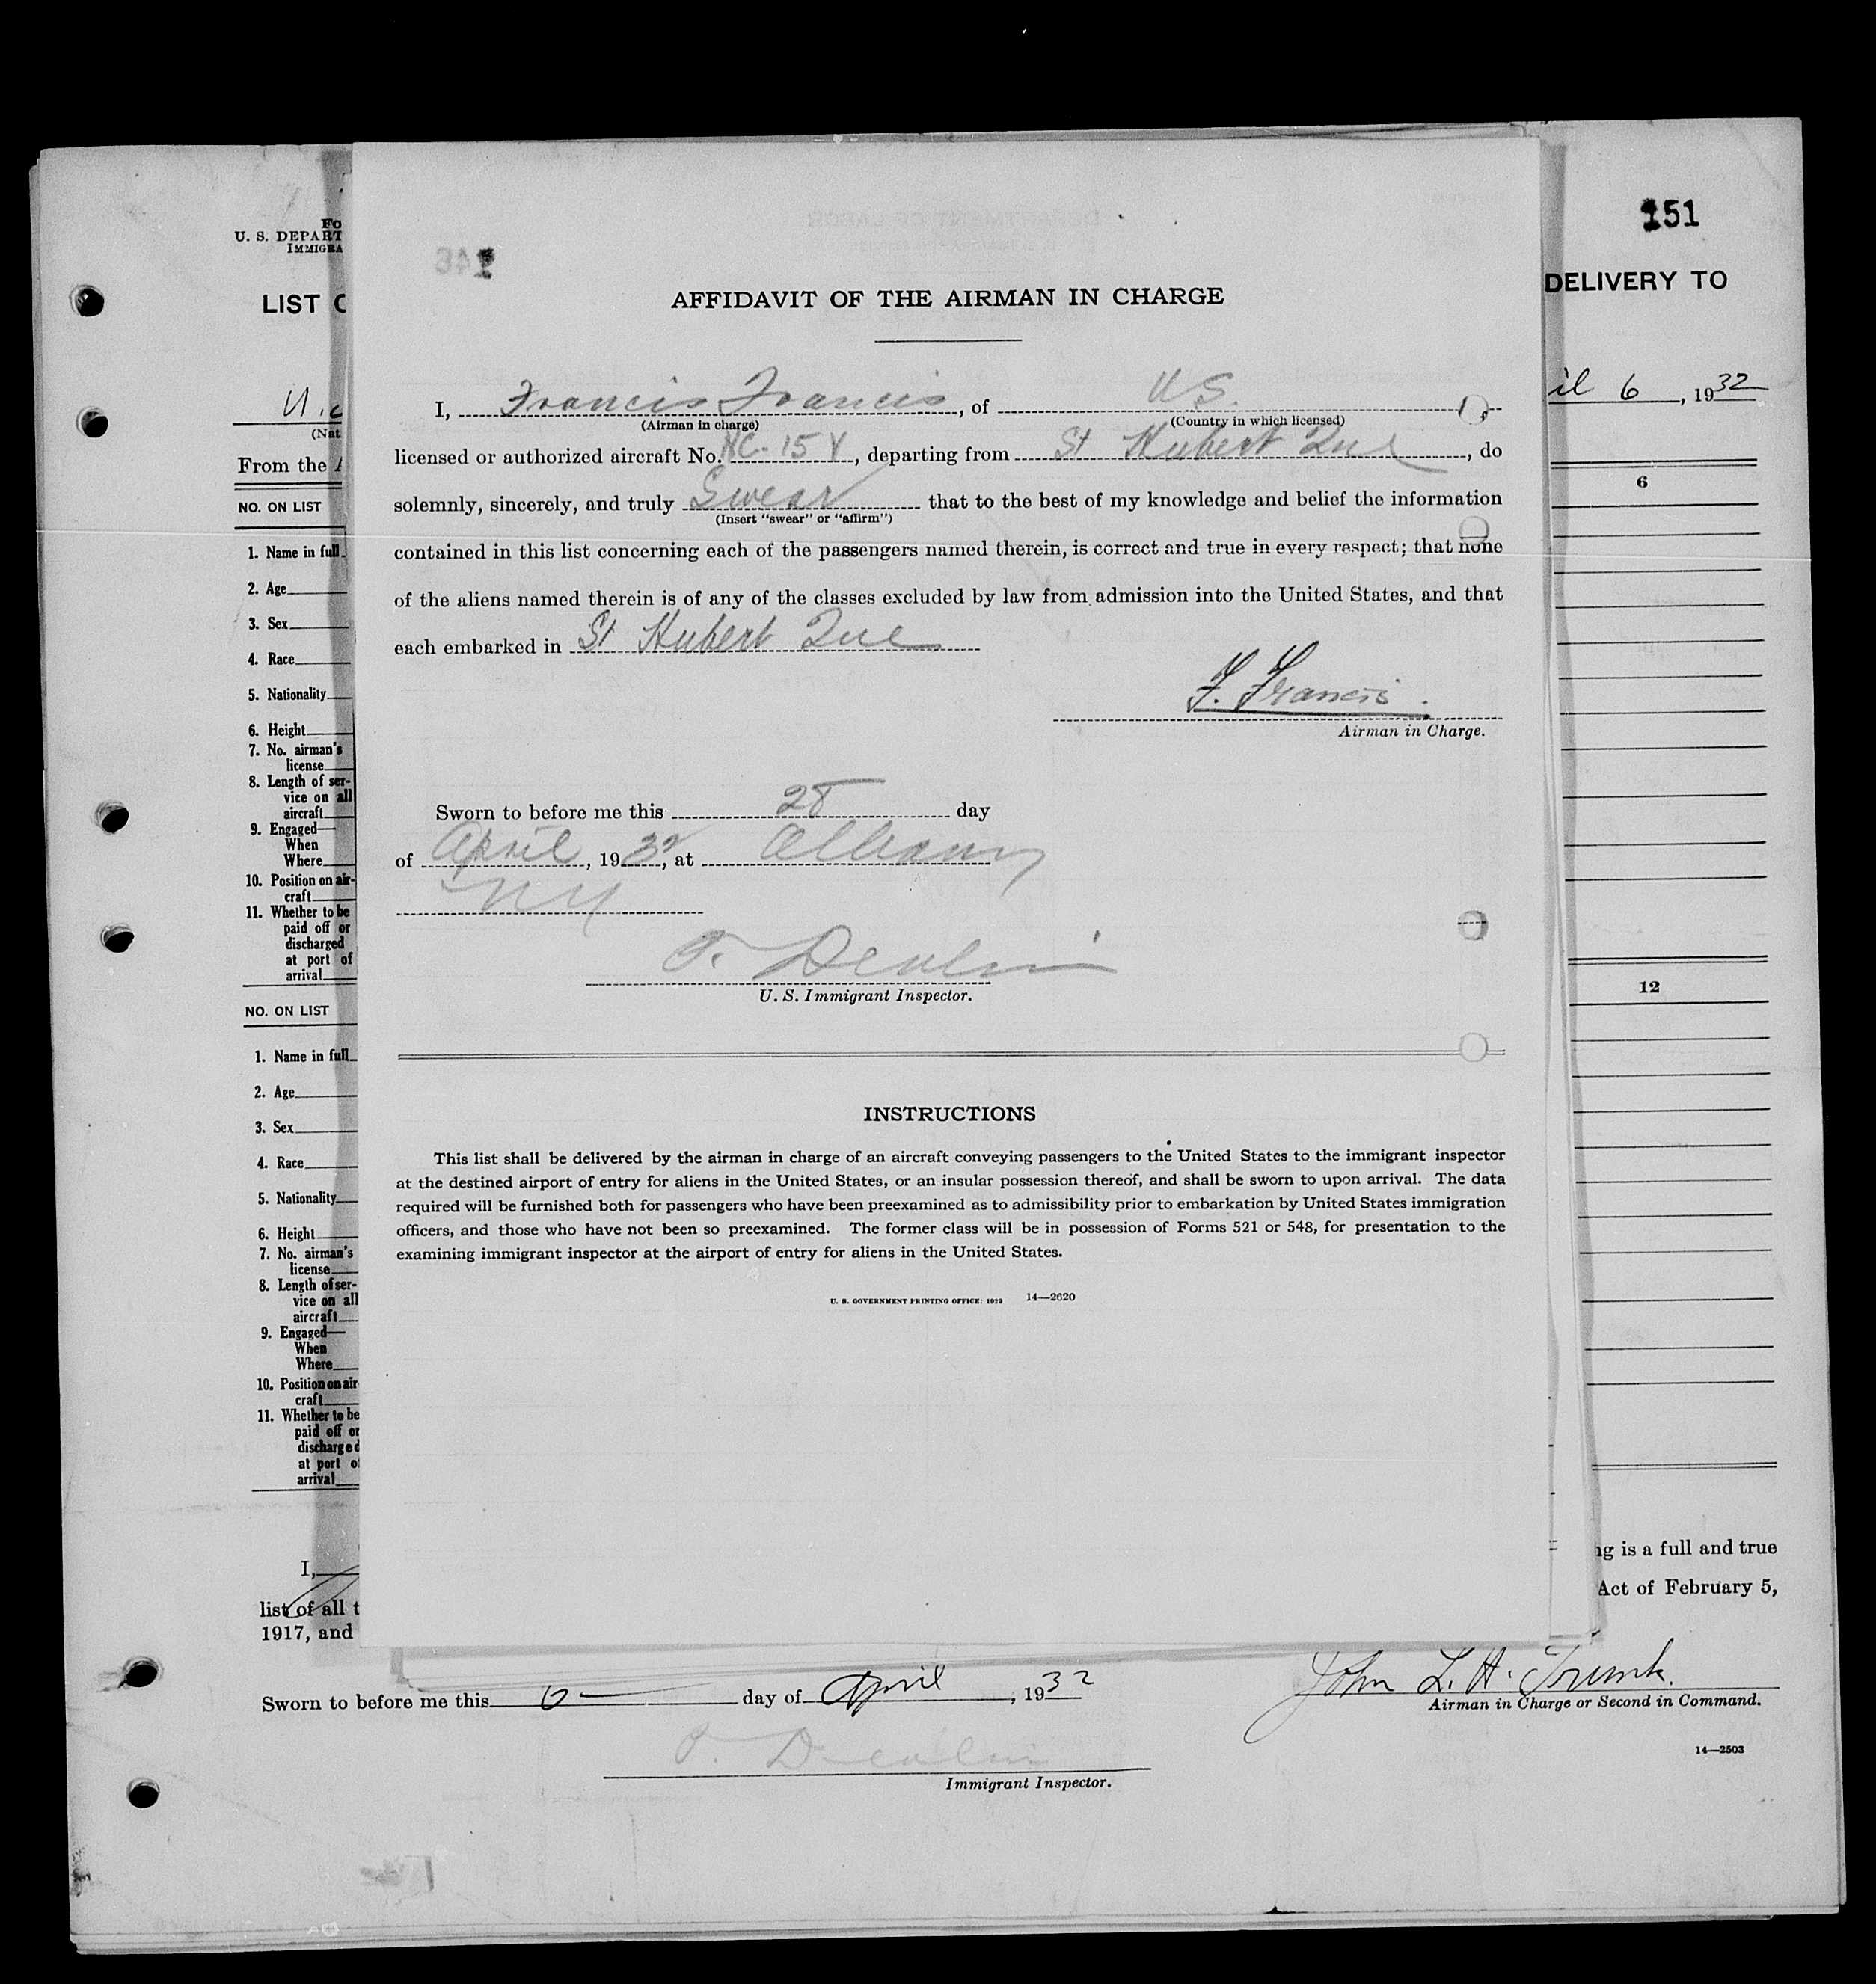 151
Fo
U. S. DEPART
IMMIGRA
LIST O
DELIVERY TO
U.
il 6, 1932
(Nat
From the A
AFFIDAVIT OF THE AIRMAN IN CHARGE
I, Francis Francis, of U S.
(Airman in charge) (Country in which licensed)
licensed or authorized aircraft No. NC-15 , departing from St Hubert Que, do
solemnly, sincerely, and truly Swear that to the best of my knowledge and belief the information
(Insert "swear" or "affirm")
contained in this list concerning each of the passengers named therein, is correct and true in every respect; that none
of the aliens named therein is of any of the classes excluded by law from admission into the United States, and that
each embarked in St Hubert Que
F. Francis.
Airman in Charge.
Sworn to before me this 28 day
of April, 1932, at Albany
NY
T. Devlin
U. S. Immigrant Inspector.
INSTRUCTIONS
This list shall be delivered by the airman in charge of an aircraft conveying passengers to the United States to the immigrant inspector
at the destined airport of entry for aliens in the United States, or an insular possession thereof, and shall be sworn to upon arrival. The data
required will be furnished both for passengers who have been preexamined as to admissibility prior to embarkation by United States immigration
officers, and those who have not been so preexamined. The former class will be in possession of Forms 521 or 548, for presentation to the
examining immigrant inspector at the airport of entry for aliens in the United States.
U. S. GOVERNMENT PRINTING OFFICE: 1929 14—2620
NO. ON LIST
6
1. Name in full
2. Age
3. Sex
4. Race
5. Nationality
6. Height
7. No. airman's
license
8. Length of ser-
vice on all
aircraft
9. Engaged—
When
Where
10. Position on air-
craft
11. Whether to be
paid off or
discharged
at port of
arrival
NO. ON LIST
12
1. Name in full
2. Age
3. Sex
4. Race
5. Nationality
6. Height
7. No. airman's
license
8. Length of ser-
vice on all
aircraft
9. Engaged—
When
Where
10. Position on air
craft
11. Whether to be
paid off or
discharged
at port of
arrival
I,
ng is a full and true
list of all t
Act of February 5,
1917, and
John L. H. Trunk.
Airman in Charge or Second in Command.
Sworn to before me this 6 day of April, 1932
14—2503
T. Devlin
Immigrant Inspector.